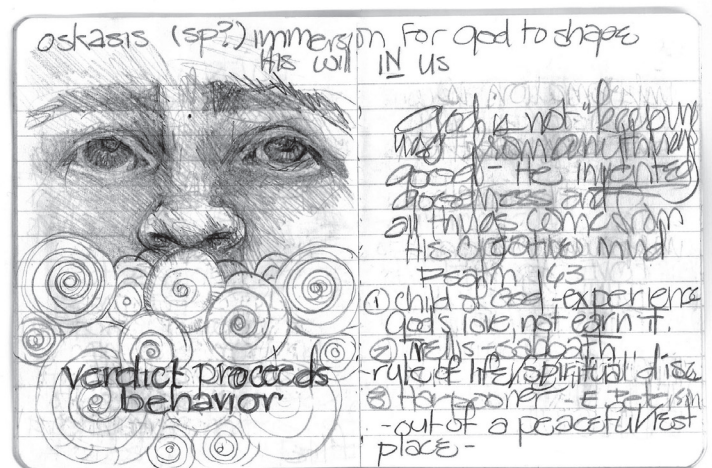 oskasis (sp?) immersion for god to shape
His will IN us
god is not "keeping
us from anything
good - He invented
goodness and
all things come from
His creative mind
Psalm 143
① child of God - experience
god's love, not earn it.
② Trellis - sabbath
- rule of life/spiritual disc
③ Harpooner - E. Peterson
- out of a peaceful/rest
place -
verdict proceeds
behavior